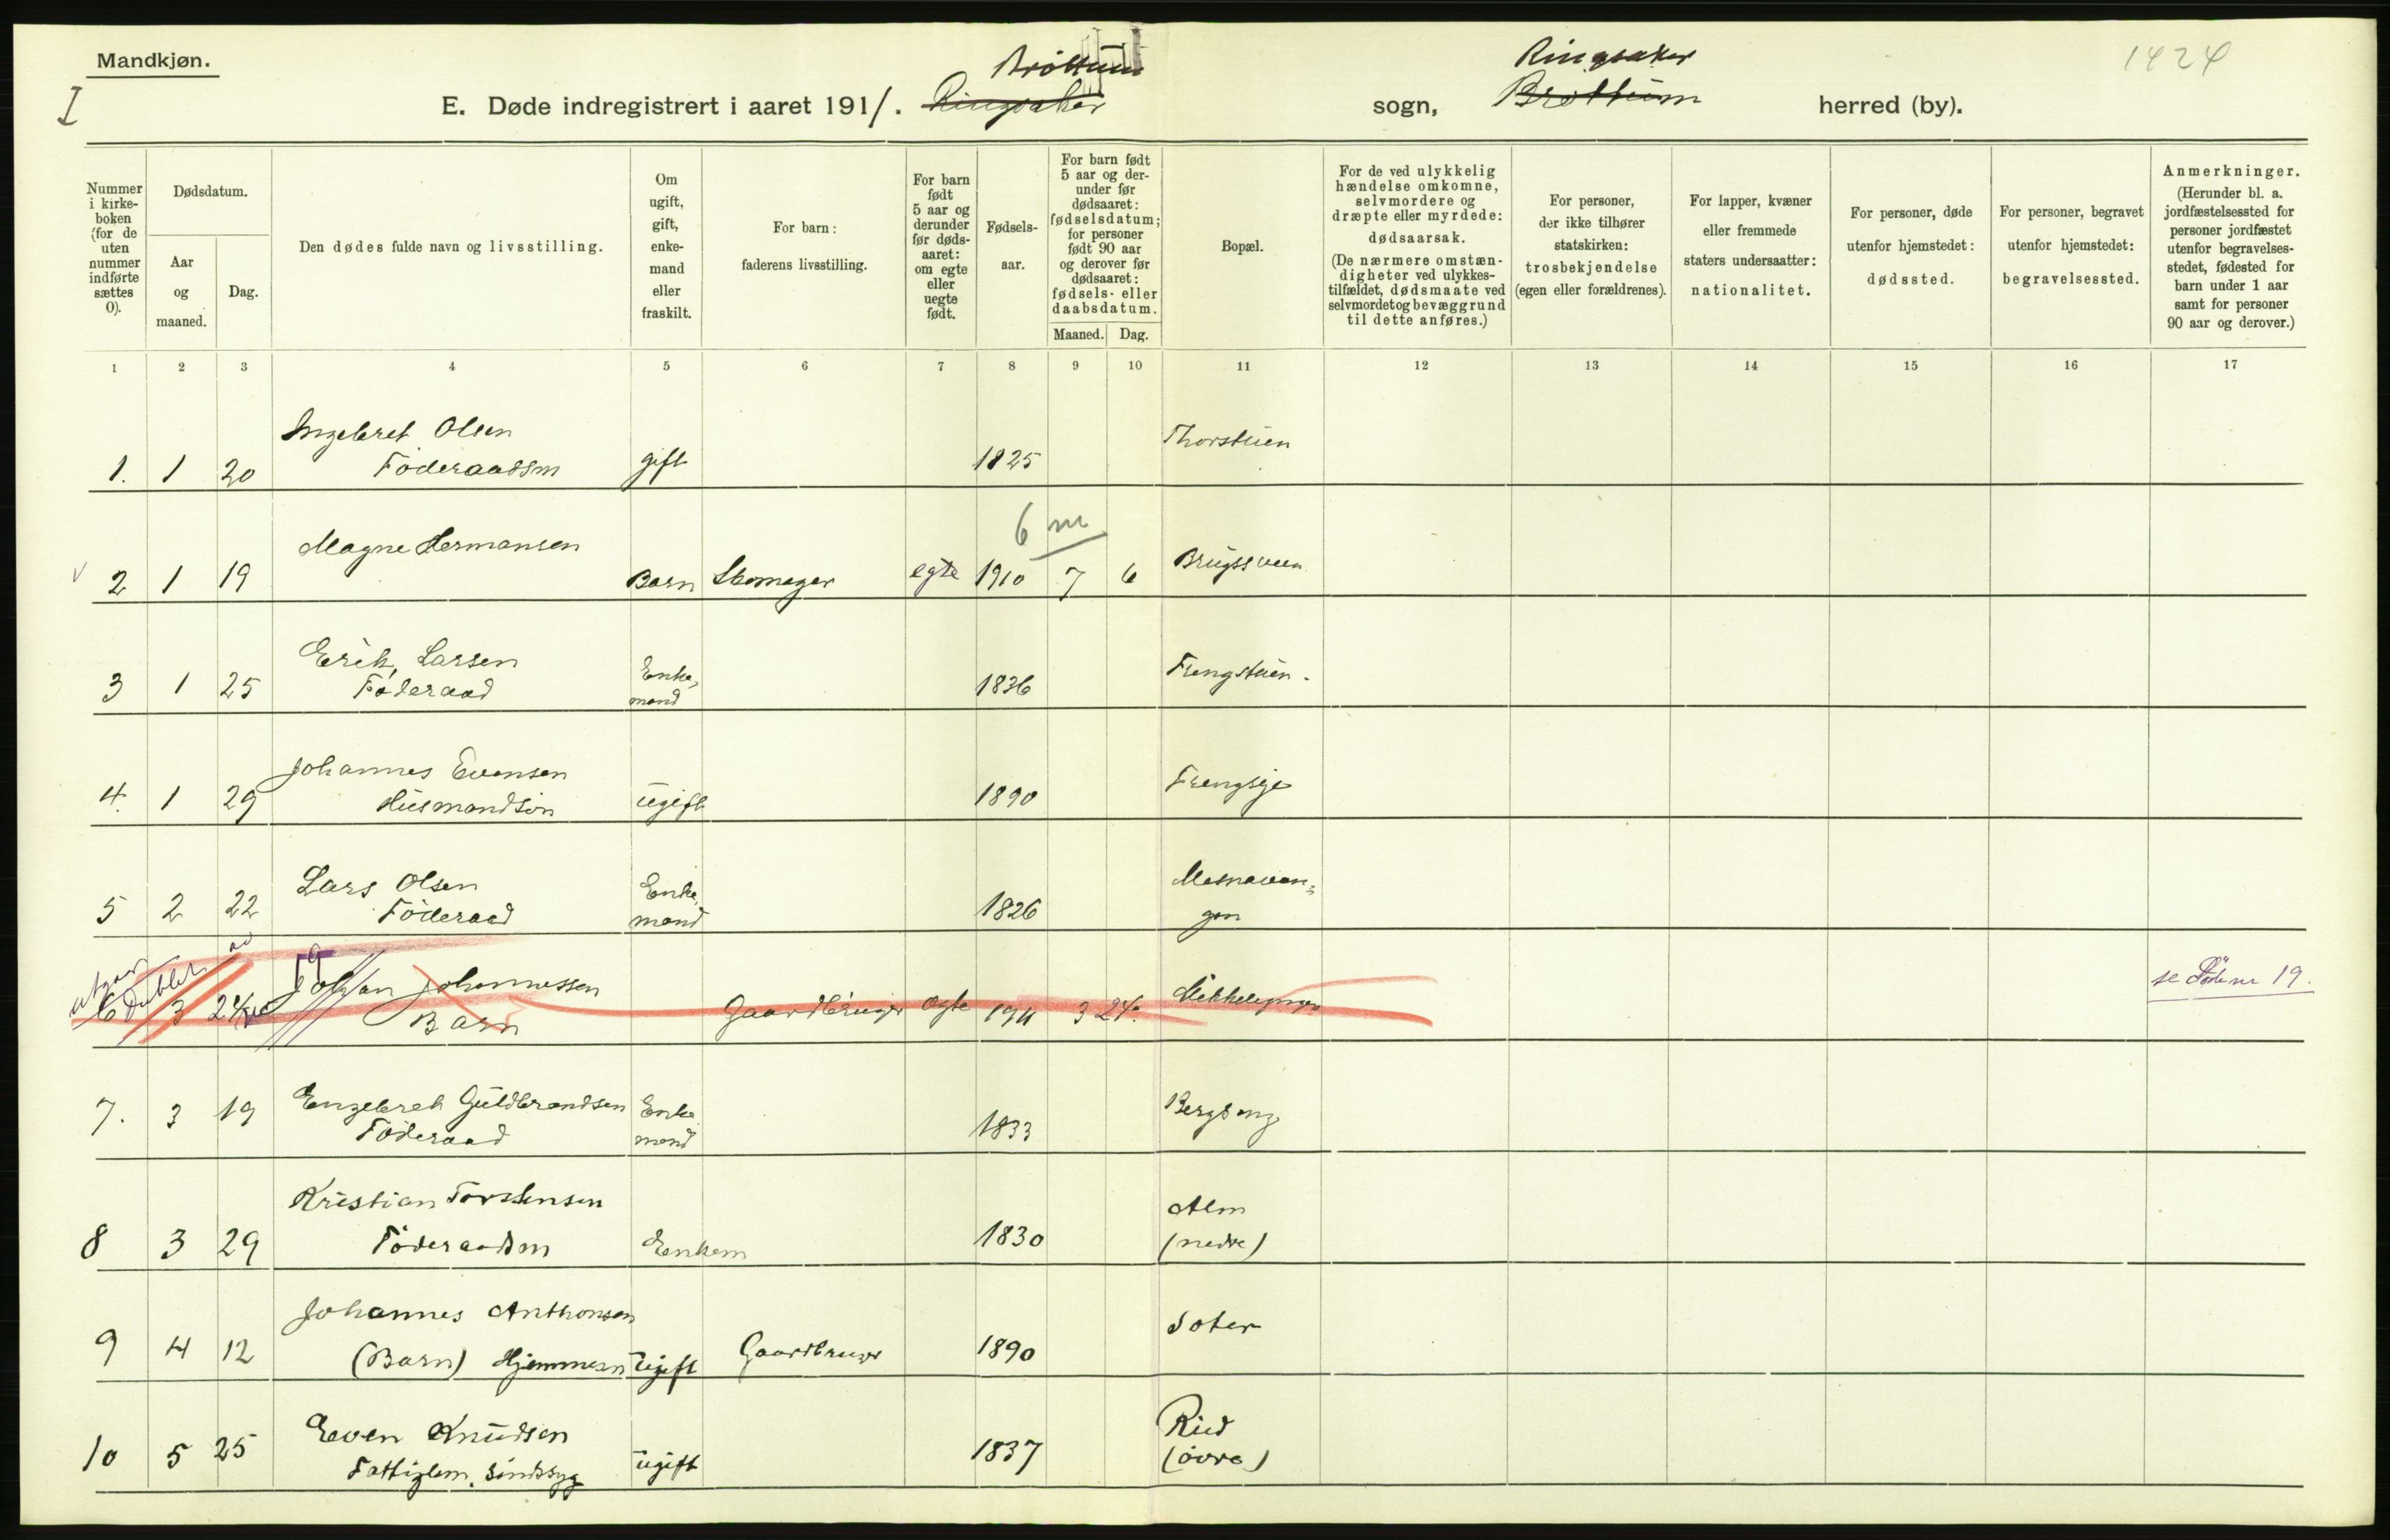 Mandkjøn.
I
Brøttum
Ringsaker
1424
E. Døde indregistrert i aaret 1911. Ringsaker sogn, Brøttum herred (by).
Nummer i kirkeboken (for de uten nummer indførte sættes 0).
Dødsdatum.
Aar og maaned.
Dag.
Den dødes fulde navn og livsstilling.
Om ugift, gift, enkemand eller fraskilt.
For barn: faderens livsstilling.
For barn født 5 aar og derunder før dødsaaret: om egte eller uegte født.
Fødselsaar.
For barn født 5 aar og derunder før dødsaaret: fødselsdatum; for personer født 90 aar og derover før dødsaaret: fødsels- eller daabsdatum.
Maaned. Dag.
Bopæl.
For de ved ulykkelig hændelse omkomne, selvmordere og dræpte eller myrdede: dødsaarsak. (De nærmere omstændigheter ved ulykkestilfældet, dødsmaate ved selvmordet og bevæggrund til dette anføres.)
For personer, der ikke tilhører statskirken: trosbekjendelse (egen eller forældrenes).
For lapper, kvæner eller fremmede staters undersaatter: nationalitet.
For personer, døde utenfor hjemstedet: dødssted.
For personer, begravet utenfor hjemstedet: begravelsessted.
Anmerkninger. (Herunder bl. a. jordfæstelsessted for personer jordfæstet utenfor begravelsesstedet, fødested for barn under 1 aar samt for personer 90 aar og derover.)
1 2 3 4 5 6 7 8 9 10 11 12 13 14 15 16 17
Ingebret Olsen Thorstuen
1. 1 20 Föderaadsm gift 1825
6 m
Magne Hermansen Brugssveen
v 2 1 19 Barn Skomager egte 1910 7 6
Erik Larsen Enke- Frengstuen.
3 1 25 Föderaad mand 1836
Johannes Evensen Frengsje
4. 1 29 Husmandsön ugift 1890
Lars Olsen Enke Mesnaven=
5 2 22 Föderaad mand 1826 gen
utgaar dublet
Johan Johannessen se Föde nr 19.
6 3 24 Barn Gaardbruger egte 1911 3 24.
Engebret Guldbrandsen Enke Bergseng
7. 3 19 Föderaad mand 1833
Kristian Torstensen Alm
8 3 29 Föderaadsm Enkem 1830 (nedre)
Johannes Anthonsen Soter
9 4 12 (Barn) Hjemmesn ugift Gaardbruger 1890
Even Knudsen Rud
10 5 25 Fattiglem. Sindssyg ugift 1837 (övre)